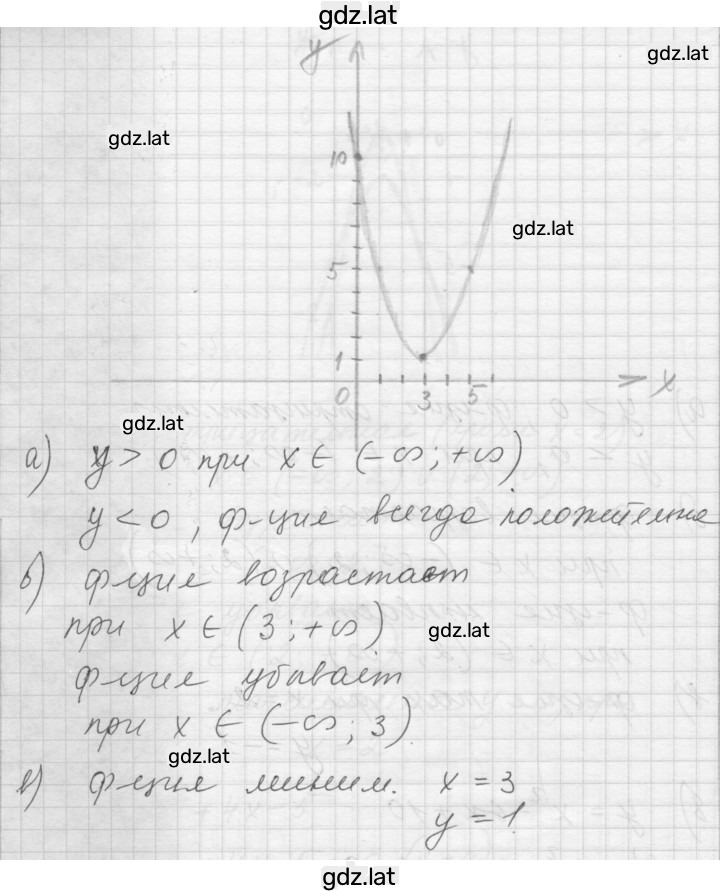 gdz.lat
y
gdz.lat
gdz.lat
10
gdz.lat
5
1
0 3 5 x
gdz.lat
а) y > 0 при x ∈ (-∞; +∞)
y < 0, ф-ция всегда положительна
б) ф-ция возрастает
при x ∈ (3; +∞)
gdz.lat
ф-ция убывает
при x ∈ (-∞; 3)
gdz.lat
в) ф-ция миним. x = 3
y = 1
gdz.lat